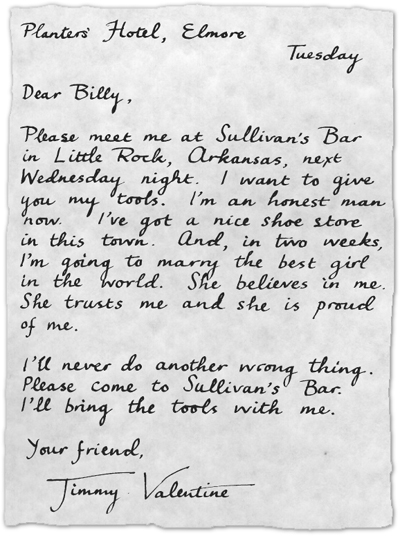 Planters' Hotel, Elmore
Tuesday
Dear Billy,
Please meet me at Sullivan's Bar
in Little Rock, Arkansas, next
Wednesday night. I want to give
you my tools. I'm an honest man
now. I've got a nice shoe store
in this town. And, in two weeks,
I'm going to marry the best girl
in the world. She believes in me.
She trusts me and she is proud
of me.
I'll never do another wrong thing.
Please come to Sullivan's Bar.
I'll bring the tools with me.
Your friend,
Jimmy Valentine